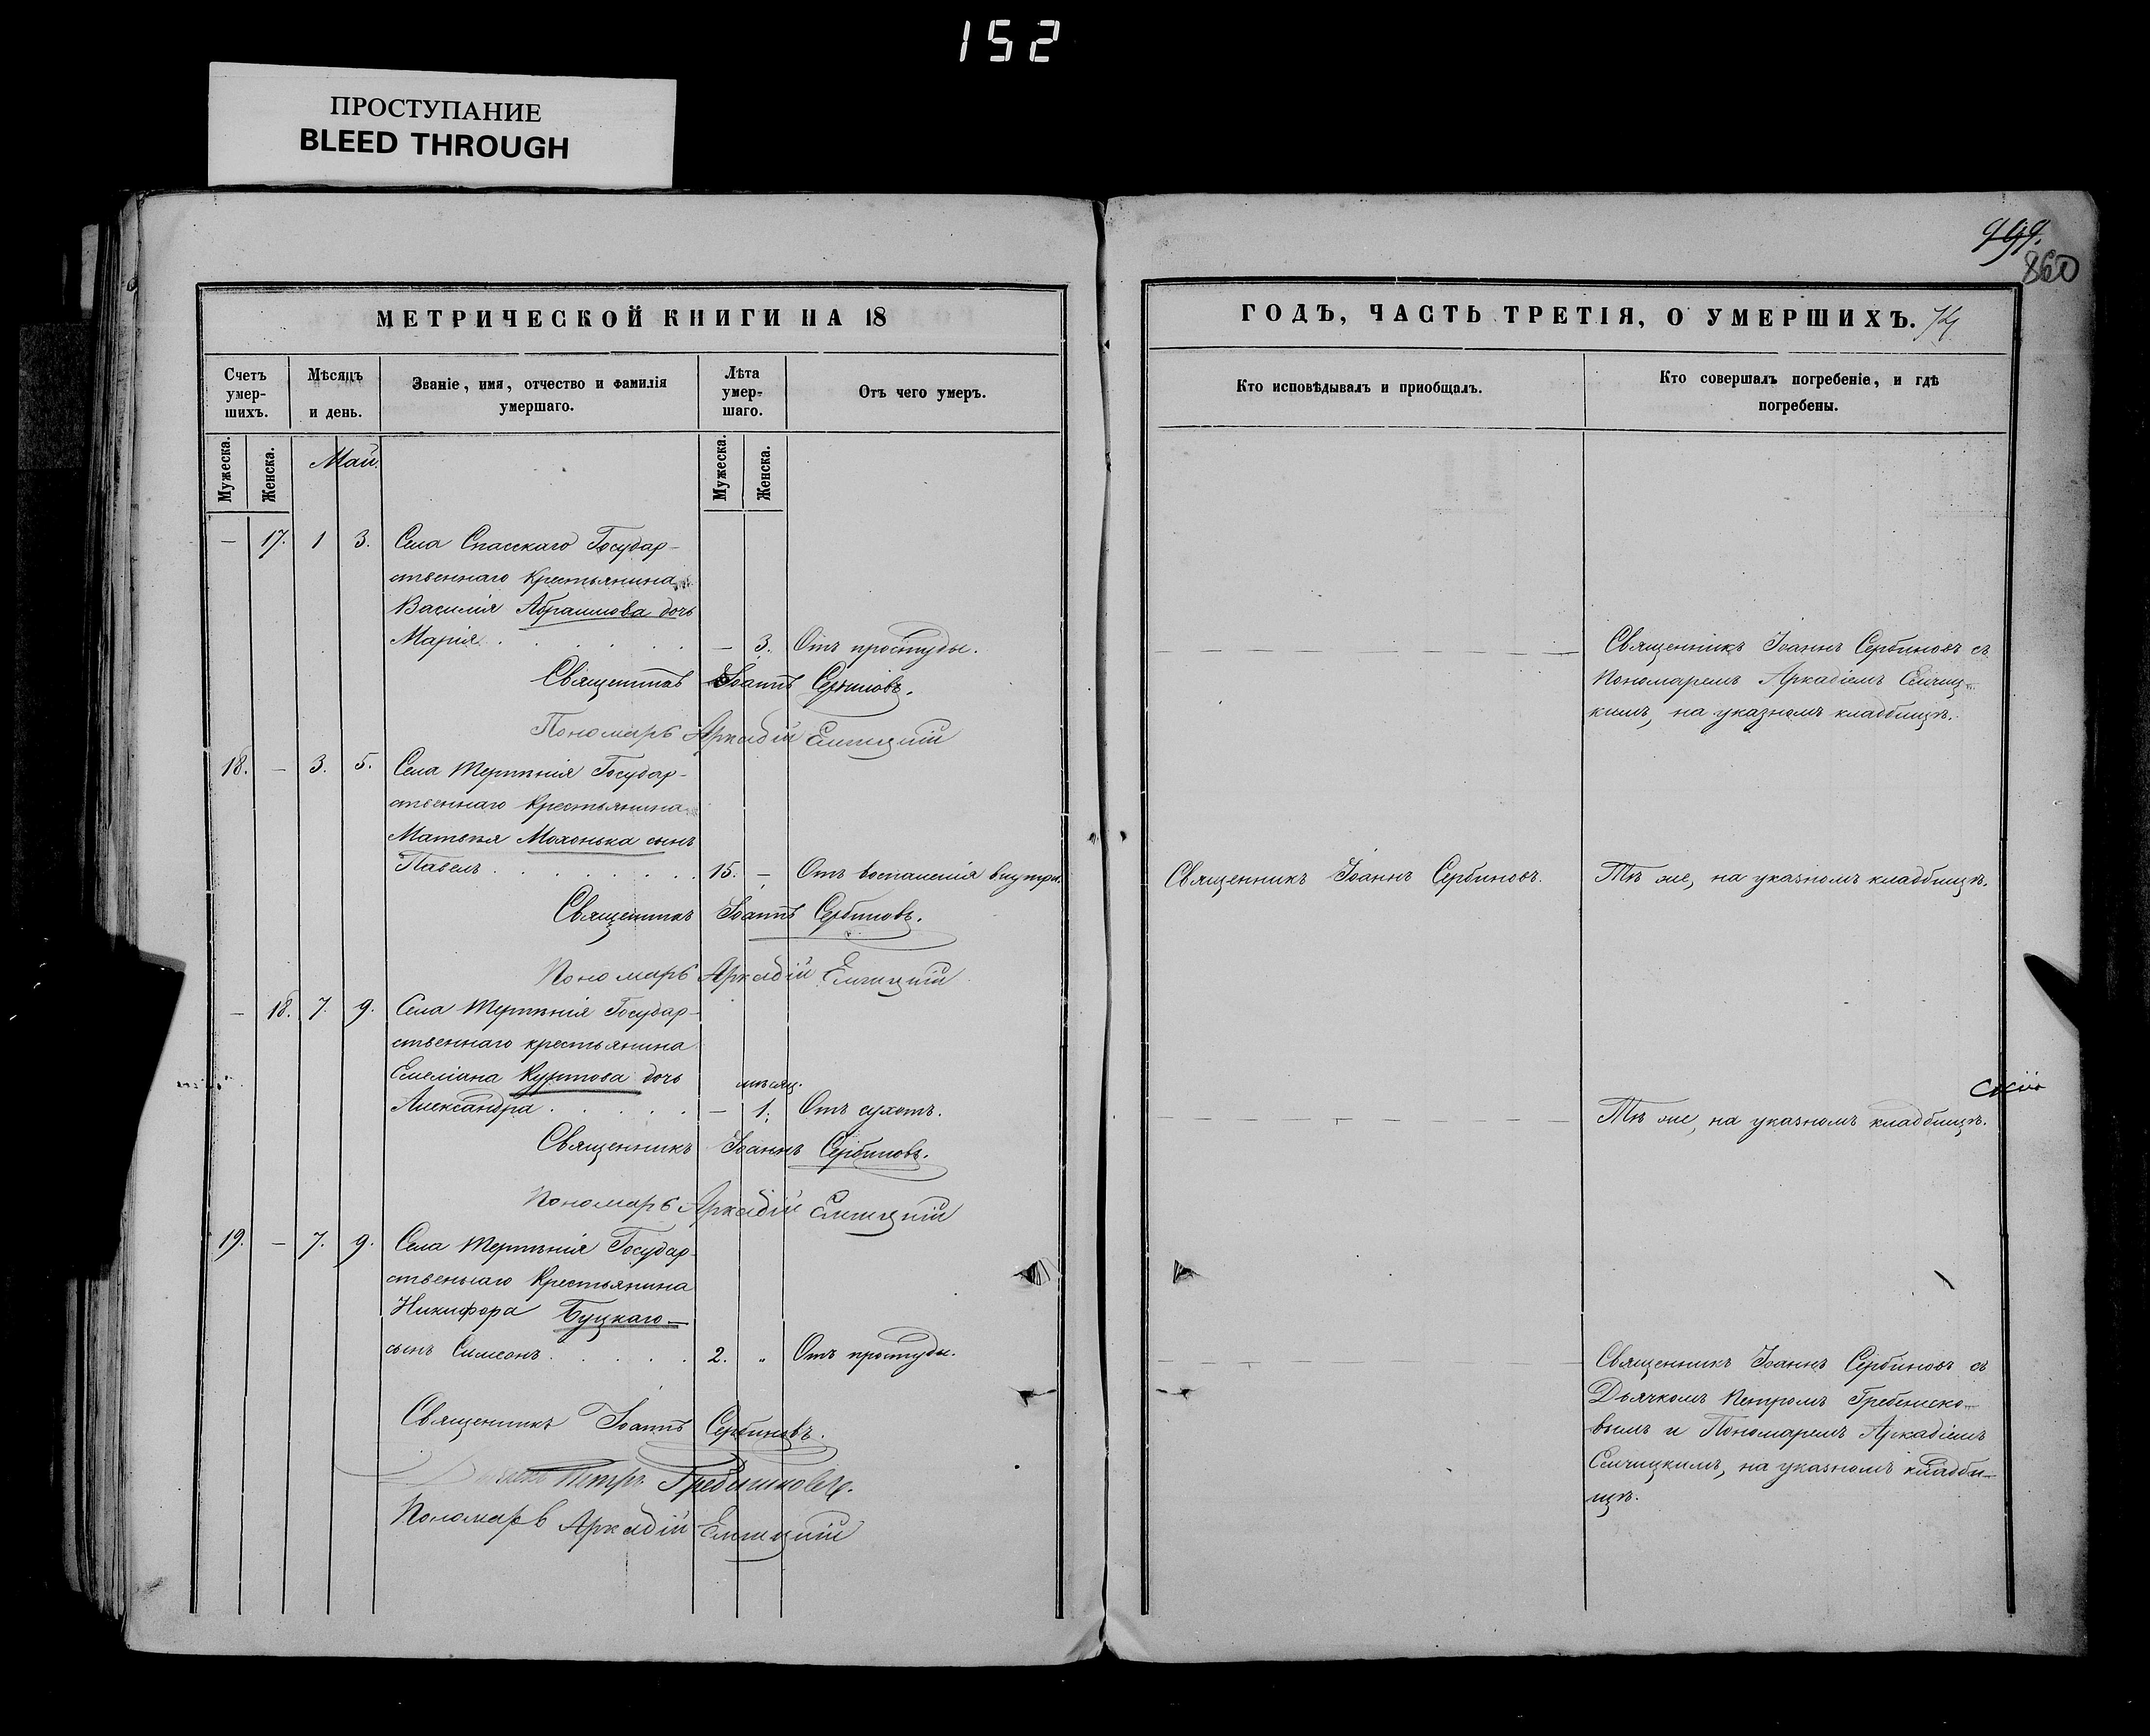 152
ПРОСТУПАНИЕ
BLEED THROUGH
999.
860
МЕТРИЧЕСКОЙ КНИГИ НА 18
ГОДЪ, ЧАСТЬ ТРЕТІЯ, О УМЕРШИХЪ. 74
Счетъ умер-шихъ.
Мѣсяцъ и день.
Званіе, имя, отчество и фамилія умершаго.
Лѣта умер-шаго.
Отъ чего умеръ.
Кто исповѣдывалъ и приобщалъ.
Кто совершалъ погребеніе, и гдѣ погребены.
Мужеска.
Женска.
Май.
Мужеска.
Женска.
— 17. 1 3. Села Спасскаго Государ-
ственнаго Крестьянина
Василія Абраимова дочь
Марія . . . . . — 3. Отъ простуды.
Священникъ Іоаннъ Сербиновъ съ
Пономаремъ Аркадіемъ Емчиц-
кимъ, на указномъ кладбищѣ.
Священникъ Іоаннъ Сербиновъ.
Пономарь Аркадій Емчицкій
18. — 3. 5. Села Терпѣнія Государ-
ственнаго Крестьянина
Матвѣя Мохонька сынъ
Павелъ . . . . . . . 15. — Отъ воспаленія внутри.
Священникъ Іоаннъ Сербиновъ.
Тѣ же, на указномъ кладбищѣ.
Священникъ Іоаннъ Сербиновъ.
Пономарь Аркадій Емчицкій
— 18. 7. 9. Села Терпѣнія Государ-
ственнаго крестьянина
Емеліана Куртова дочь
мѣсяц.
Александра . . . . . — 1. Отъ сухотъ.
Тѣ же, на указномъ кладбищѣ.
Священникъ Іоаннъ Сербиновъ.
Пономарь Аркадій Емчицкій
19. — 7. 9. Села Терпѣнія Государ-
ственнаго Крестьянина
Никифора Буцкаго—
сынъ Симеонъ . . . . . 2. „ Отъ простуды.
Священникъ Іоаннъ Сербиновъ съ
Дьячкомъ Петромъ Гребенико-
вымъ и Пономаремъ Аркадіемъ
Емчицкимъ, на указномъ кладби-
щѣ.
Священникъ Іоаннъ Сербиновъ.
Петръ Гребениковъ.
Пономарь Аркадій Емчицкій